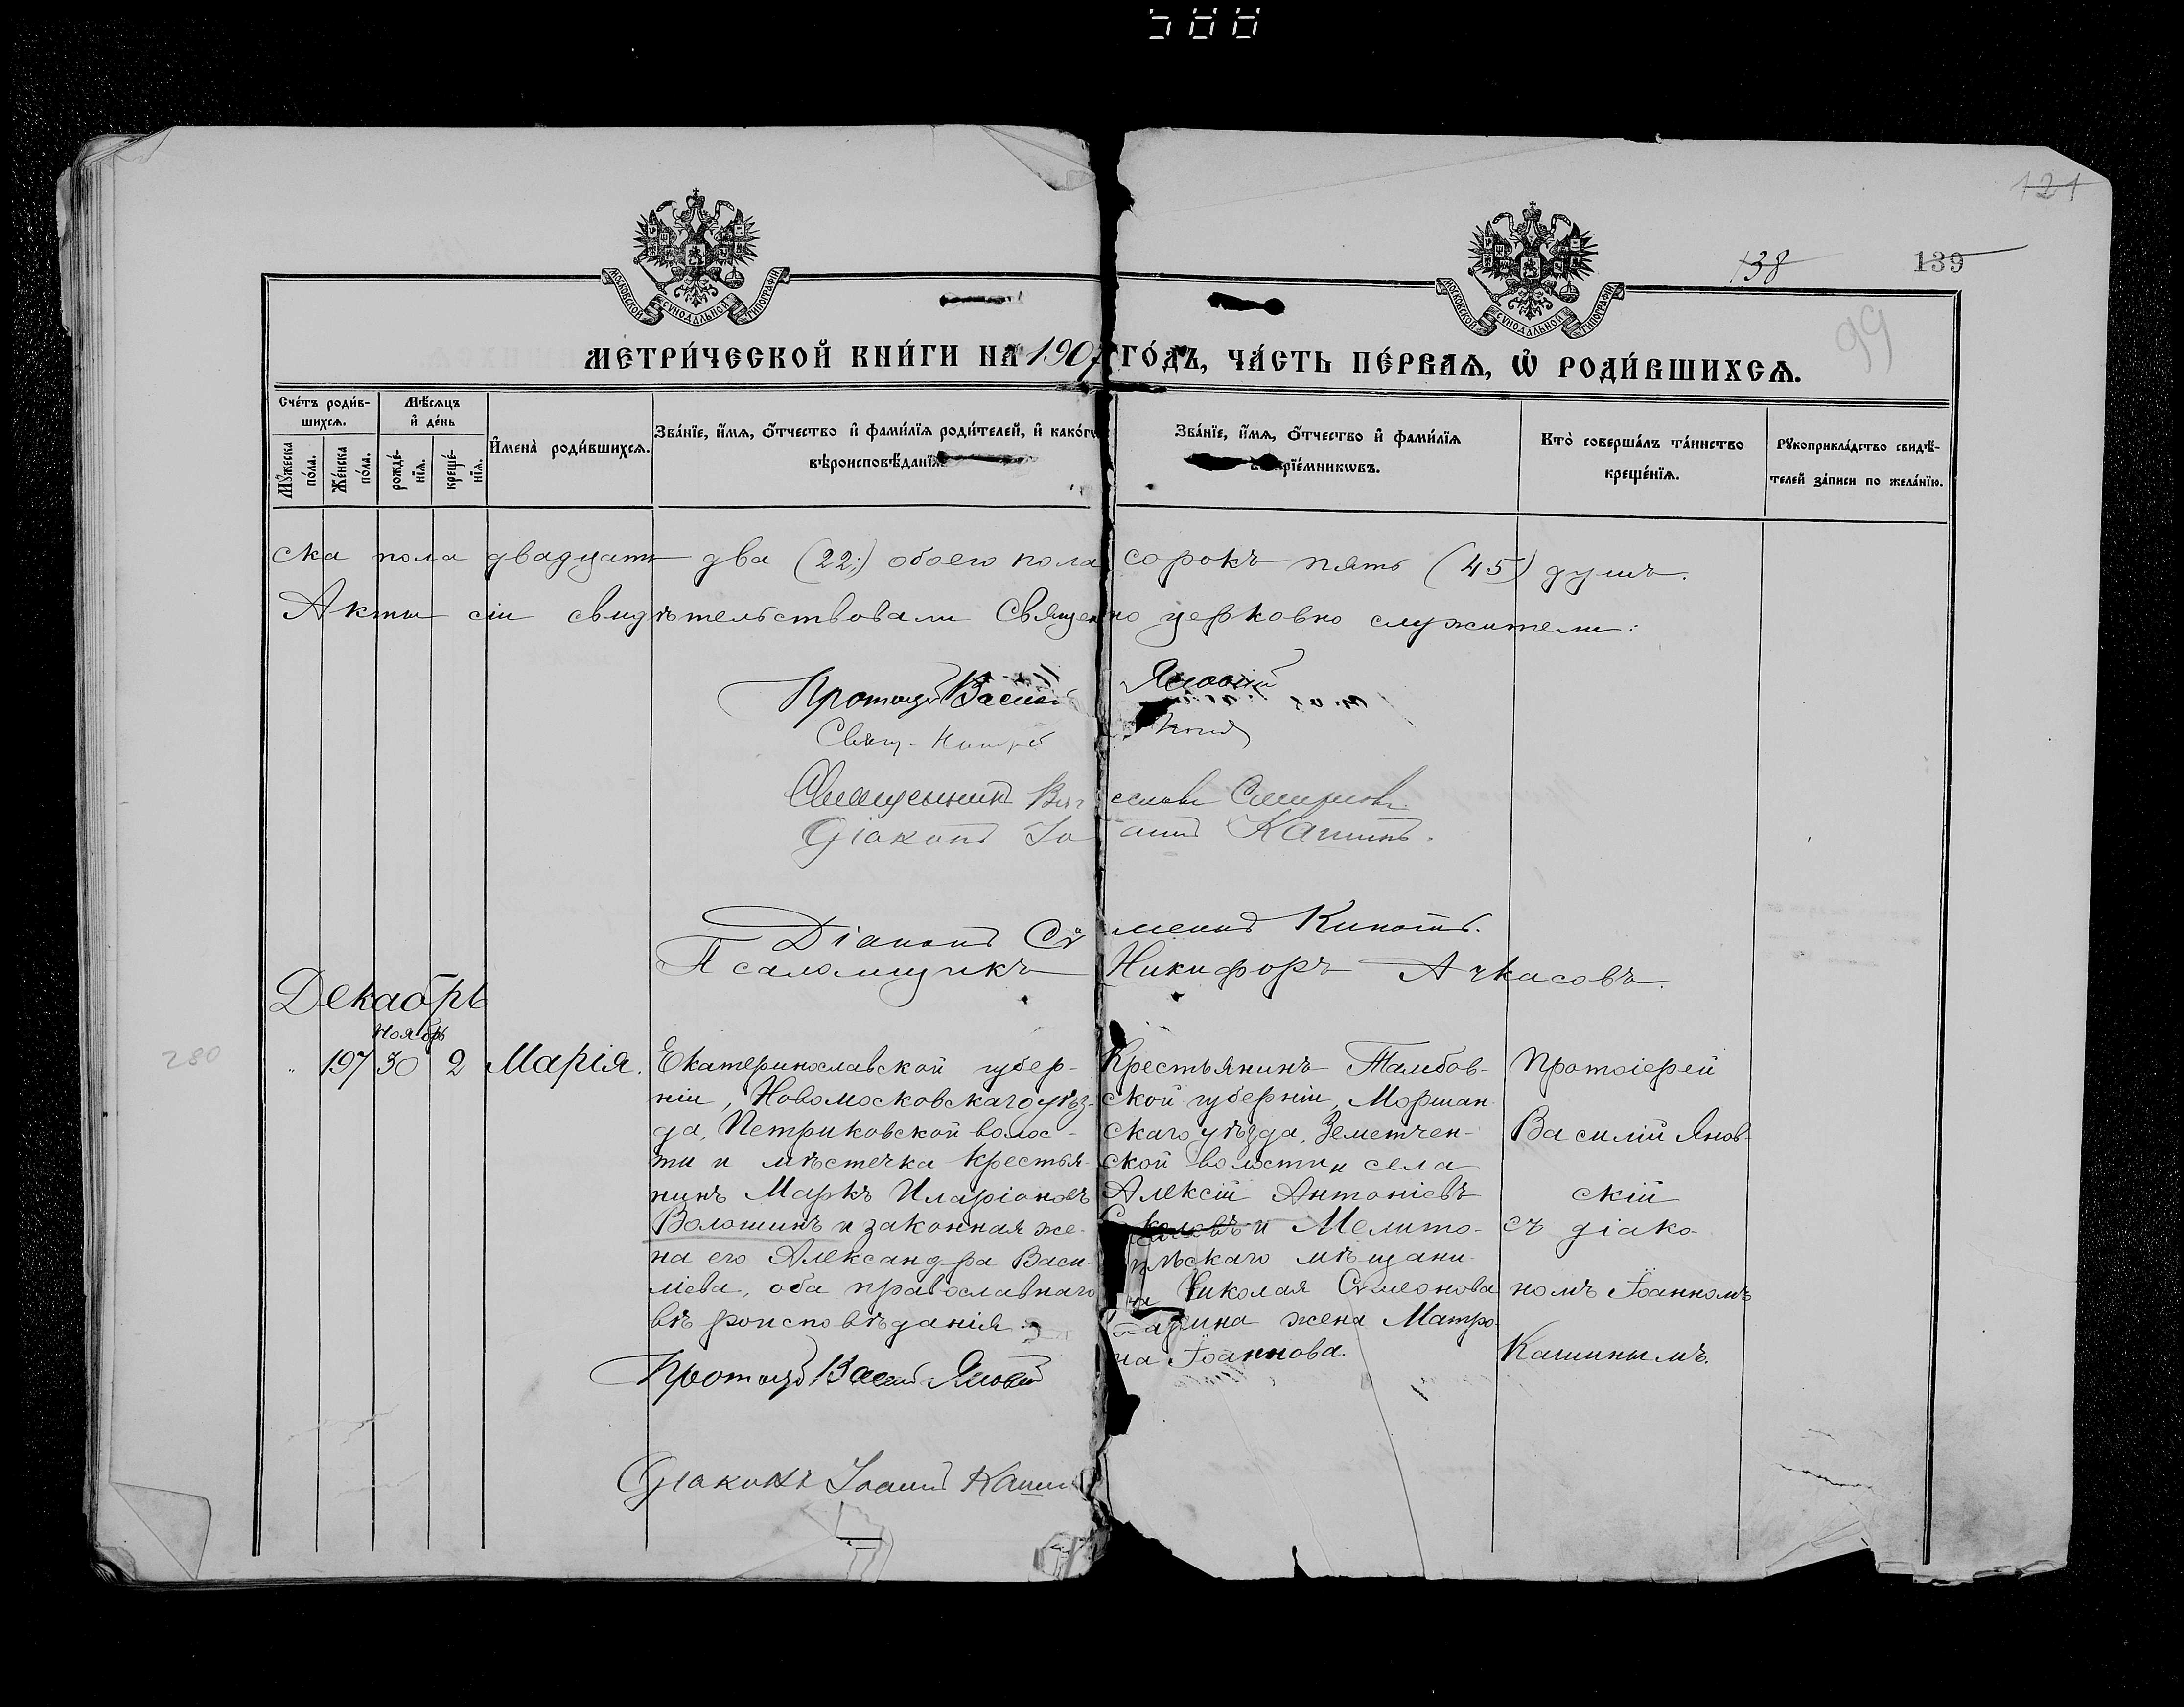 500
121
138
139
99
МОСКОВСКОЙ СѴНОДАЛЬНОЙ ТИПОГРАФІИ
МОСКОВСКОЙ СѴНОДАЛЬНОЙ ТИПОГРАФІИ
МЕТРИ́ЧЕСКОЙ КНИ́ГИ НА 1907 ГО́ДЪ, ЧА́СТЬ ПЕ́РВАѦ, Ѡ҆ РОДИ́ВШИХСѦ.
Сче́тъ роди́в-
шихсѧ.
Мꙋ́жеска
по́ла.
Же́нска
по́ла.
Мѣ́сѧцъ
и҆ де́нь
рожде́-
нїѧ.
креще́-
нїѧ.
И҆мена̀ роди́вшихсѧ.
Зва́нїе, и҆́мѧ, ѻ҆́тчество и҆ фами́лїѧ роди́телей, и҆ како́гѡ
вѣроисповѣ́данїѧ.
Зва́нїе, и҆́мѧ, ѻ҆́тчество и҆ фами́лїѧ
рїе́мникѡвъ.
Кто̀ соверша́лъ та́инство
креще́нїѧ.
Рꙋкоприкла́дство свидѣ́-
телей за́писи по жела́нїю.
ска пола двадцать два (22;) обоего пола сорокъ пять (45) душъ.
Акты сіи свидѣтельствовали Священно церковно служители:
Протоіер Васил Яновскій
Свящ.
Священникъ Вячеславъ Смирновъ.
Діаконъ Іоаннъ Кашинъ.
Діаконъ Сѵмеонъ
Псаломщикъ Никифоръ Ачкасовъ.
Декабрь
Ноябрь
280
" 197 30 2 Марія.
Екатеринославской губер-
ніи, Новомосковскаго уѣз-
да, Петриковской волос-
ти и мѣстечка крестья-
нинъ Маркъ Иларіоновъ
Волошинъ и законная же-
на его Александра Васи-
ліева, оба православнаго
вѣроисповѣданія.
Протоіер Васил Яновскій
Діаконъ Іоаннъ Кашинъ
Крестьянинъ Тамбов-
ской губерніи, Моршан-
скаго уѣзда, Земетчен-
ской волости и села
Алексій Антоніевъ
и Мелито-
польскаго мѣщани-
на Николая Сѵмеонова
жена Матро-
на Іоаннова.
Протоіерей
Василій Янов-
скій
съ діако-
номъ Іоанномъ
Кашинымъ.